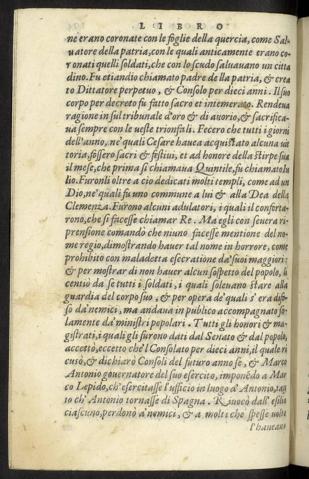 LIBRO
ne erano coronate con le foglie della quercia, come Sal-
uatore della patria, con le quali anticamente erano co-
ronati quelli soldati, che con lo scudo saluauano un citta
dino. Fu etiandio chiamato padre della patria, & crea
to Dittatore perpetuo, & Consolo per dieci anni. Il suo
corpo per decreto fu fatto sacro et intemerato. Rendeua
ragione in sul tribunale d'oro & di auorio, & sacrifica-
ua sempre con le ueste trionfali. Fecero che tutti i giorni
dell'anno, ne' quali Cesare haueua acquistato alcuna uit
toria, fossero sacri & festiui, et ad honore della stirpe sua
il mese, che prima si chiamaua Quintile, fu chiamato Iu
lio. Furonli oltre a cio dedicati molti templi, come ad un
Dio, ne' quali fu uno commune a lui & alla Dea della
Clemenza. Furono alcuni adulatori, i quali il conforta-
rono, che si facesse chiamar Re. Ma egli con seuera ri-
prensione comandò che niuno facesse mentione del no-
me regio, dimostrando hauer tal nome in horrore, come
prohibito con maladetta esecratione da' suoi maggiori:
& per mostrar di non hauer alcun sospetto del popolo, li
centiò da se tutti i soldati, i quali soleuano stare alla
guardia del corpo suo, & per opera de' quali s'era dife-
so da' nemici, ma andaua in publico accompagnato so-
lamente da' ministri popolari. Tutti gli honori & ma-
gistrati, i quali gli furono dati dal Senato & dal popolo,
accettò, eccetto che'l Consolato per dieci anni, il quale ri
cusò, & dichiarò Consoli del futuro anno se, & Marco
Antonio gouernatore del suo esercito, imponedo a Mar
co Lepido, ch'esercitasse l'ufficio in luogo d'Antonio, tan
to ch'Antonio tornasse di Spagna. Riuocò dall'esilio
ciascuno, perdonò a' nemici, & a molti che spesse uolte
l'haueano